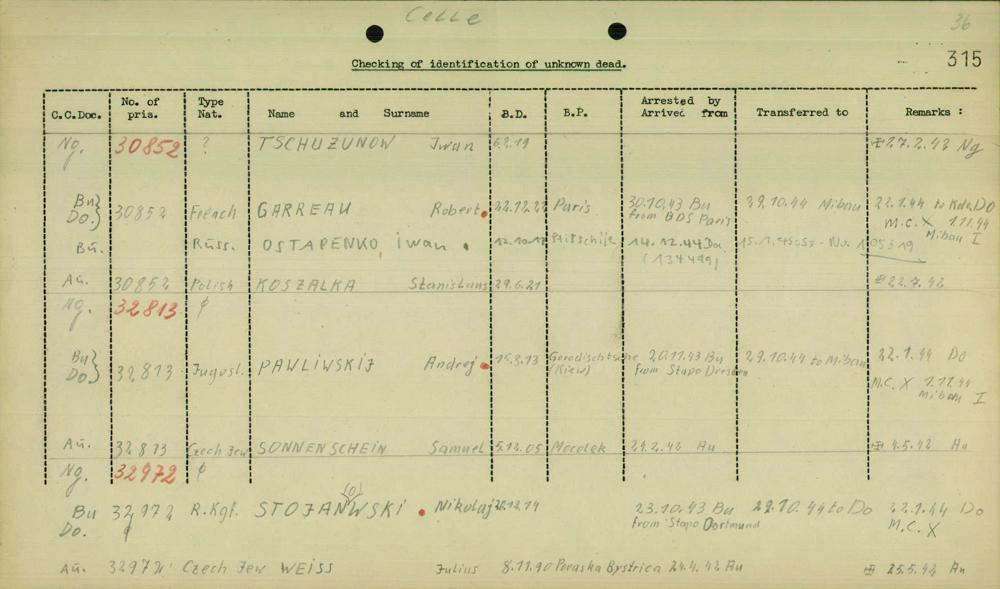 Celle
36
315
Checking of identification of unknown dead.
C.C.Doc. No. of pris. Type Nat. Name and Surname B.D. B.P. Arrested by Arrived from Transferred to Remarks :
Ng. 30852 ? TSCHUZUNOW Iwan 6.2.19 27.2.42 Ng
Bu} Do.} 30852 French GARREAU Robert 22.12.22 Paris 30.10.43 Bu from BDS Paris 29.10.44 Mibau 22.1.44 to Kdo Do
M.C. X 1.11.44 Mibau I
Bu. Russ. OSTAPENKO, iwan 12.10.17 14.12.44 Da (134499) 15.1.45 - No. 105319
Au. 30852 Polish KOSZALKA Stanislaus 29.6.21 22.7.42
Ng. 32813
Bu} Do.} 32813 Jugosl. PAWLIWSKIJ Andrej 15.8.13 Gorodischtsche (Kiew) 20.11.43 Bu from Stapo Dresden 29.10.44 to Mibau 22.1.44 Do
M.C. X 1.11.44 Mibau I
Au. 32813 Czech Jew SONNENSCHEIN Samuel 5.12.05 24.2.42 Au 4.5.42 Au
Ng. 32972
Bu Do. 32972 R.Kgf. STOJANWSKI (O) Nikolaj 26.12.14 23.10.43 Bu from Stapo Dortmund 29.10.44 to Do 22.1.44 Do
M.C. X
Au. 32972 Czech Jew WEISS Julius 8.11.90 Bystrica 24.4.42 Au 25.5.42 Au